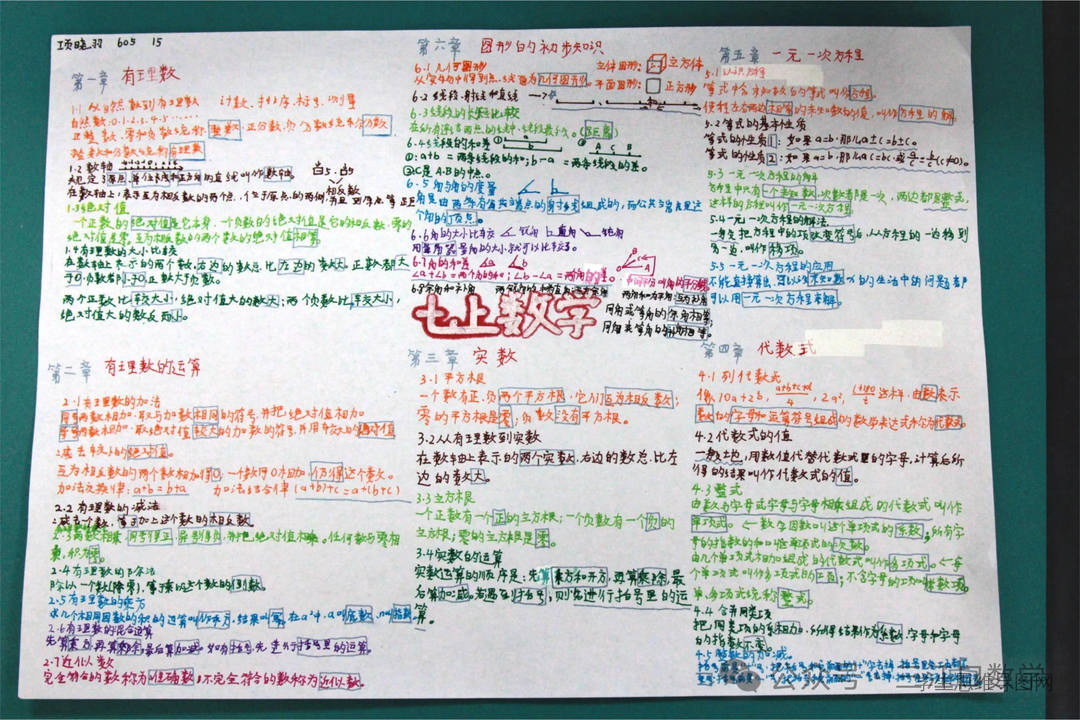 项晓羽 605 15
第一章 有理数
1.1 从自然数到有理数 计数、排序、标号、测量
自然数:0、1、2、3、4、5……
正整数、零和负整数统称整数,正分数、负分数统称分数
整数和分数统称有理数
1.2 数轴
规定了原点、单位长度和正方向的直线叫作数轴。
相反数
在数轴上,表示互为相反数的两个点,位于原点的两侧,并且到原点等距
1.3 绝对值
一个正数的绝对值是它本身,一个负数的绝对值是它的相反数,零的
绝对值是零,互为相反数的两个数的绝对值相等
1.4 有理数的大小比较
在数轴上表示的两个数,右边的数总比左边的数大。正数都大
于0,负数都小于0,正数大于负数。
两个正数比较大小,绝对值大的数大;两个负数比较大小,
绝对值大的数反而小。
第六章 图形的初步知识
6.1 几何图形 立体图形: 立方体
从实物中得到点、线、面为几何图形。平面图形: 正方形
6.2 线段、射线和直线
6.3 线段的长短比较
在所有连结两点的线中,线段最短。(距离)
6.4 线段的和差
①:a+b=两条线段的和;b-a=两条线段的差。
A C B
②C是A、B的中点。
6.5 角与角的度量
角是由两条有公共端点的射线组成的,而公共端点是这
个角的顶点。
6.6 角的大小比较 锐角 直角 钝角
用量角器量角的大小就可以比较了。
6.7 角的和差
∠a+∠b=两个角的和;∠b-∠a=两角的差。
6.8 余角和补角
两角和为平角:互为补角
同角或等角的余角相等
同角或等角的补角相等。
七上数学
第五章 一元一次方程
5.1 认识方程
等式中含有未知数的等式叫作方程。
使方程左右两边相等的未知数的值,叫作方程的解
5.2 等式的基本性质
等式的性质1:如果a=b,那么a±c=b±c。
等式的性质2:如果a=b,那么ac=bc,或a/c=b/c(c≠0)。
5.3 一元一次方程的解
方程中只有一个未知数,次数都是一次,两边都是整式,
这样的方程叫作一元一次方程。
5.4 一元一次方程的解法
一般地把方程中的项改变符号后,从方程的一边移到
另一边,叫作移项。
5.5 一元一次方程的应用
可以用一元一次方程来解。
第二章 有理数的运算
2.1 有理数的加法
同号两数相加,取与加数相同的符号,并把绝对值相加
异号两数相加,取绝对值较大的加数的符号,并用较大的绝对值
减去较小的绝对值。
互为相反数的两个数相加得0,一个数同0相加,仍得这个数。
加法交换律:a+b=b+a 加法结合律(a+b)+c=a+(b+c)
2.2 有理数的减法
减去一个数,等于加上这个数的相反数。
2.3 两数相乘,同号得正,异号得负,并把绝对值相乘。任何数与零相
乘,积为零。
2.4 有理数的除法
除以一个数(除零),等于乘以这个数的倒数。
2.5 有理数的乘方
求几个相同因数的积的运算叫作乘方,结果叫幂,在aⁿ中,a叫底数,n叫指数
2.6 有理数的混合运算
先算乘方,再算乘除,最后算加减。如有括号,先进行括号里的运算。
2.7 近似数
完全符合的数称为准确数,不完全符合的数称为近似数。
第三章 实数
3.1 平方根
一个数有正、负两个平方根,它们互为相反数;
零的平方根是零;负数没有平方根。
3.2 从有理数到实数
在数轴上表示的两个实数,右边的数总比左
边的数大。
3.3 立方根
一个正数有一个正的立方根;一个负数有一个负的
立方根;零的立方根是零。
3.4 实数的运算
实数运算的顺序是:先算乘方和开方,再算乘除,最
后算加减。若遇到括号,则先进行括号里的运
算。
第四章 代数式
4.1 列代数式
像10a+2b, , 2a², 这样,由数、表示
数的字母和运算符号组成的数学表达式称为代数式。
4.2 代数式的值
一般地,用数值代替代数式里的字母,计算后所
得的结果叫作代数式的值。
4.3 整式
由数与字母或字母与字母相乘组成的代数式叫作
单项式。←数字因数叫这个单项式的系数,所有字
母的指数的和叫作单项式的次数。
由几个单项式相加组成的代数式叫作多项式。←每
个单项式叫作多项式的项,不含字母的项叫作常数项。
单、多项式统称整式。
4.4 合并同类项
把同类项的系数相加,所得结果作为系数,字母和字母
的指数不变。
4.5 整式的加减。